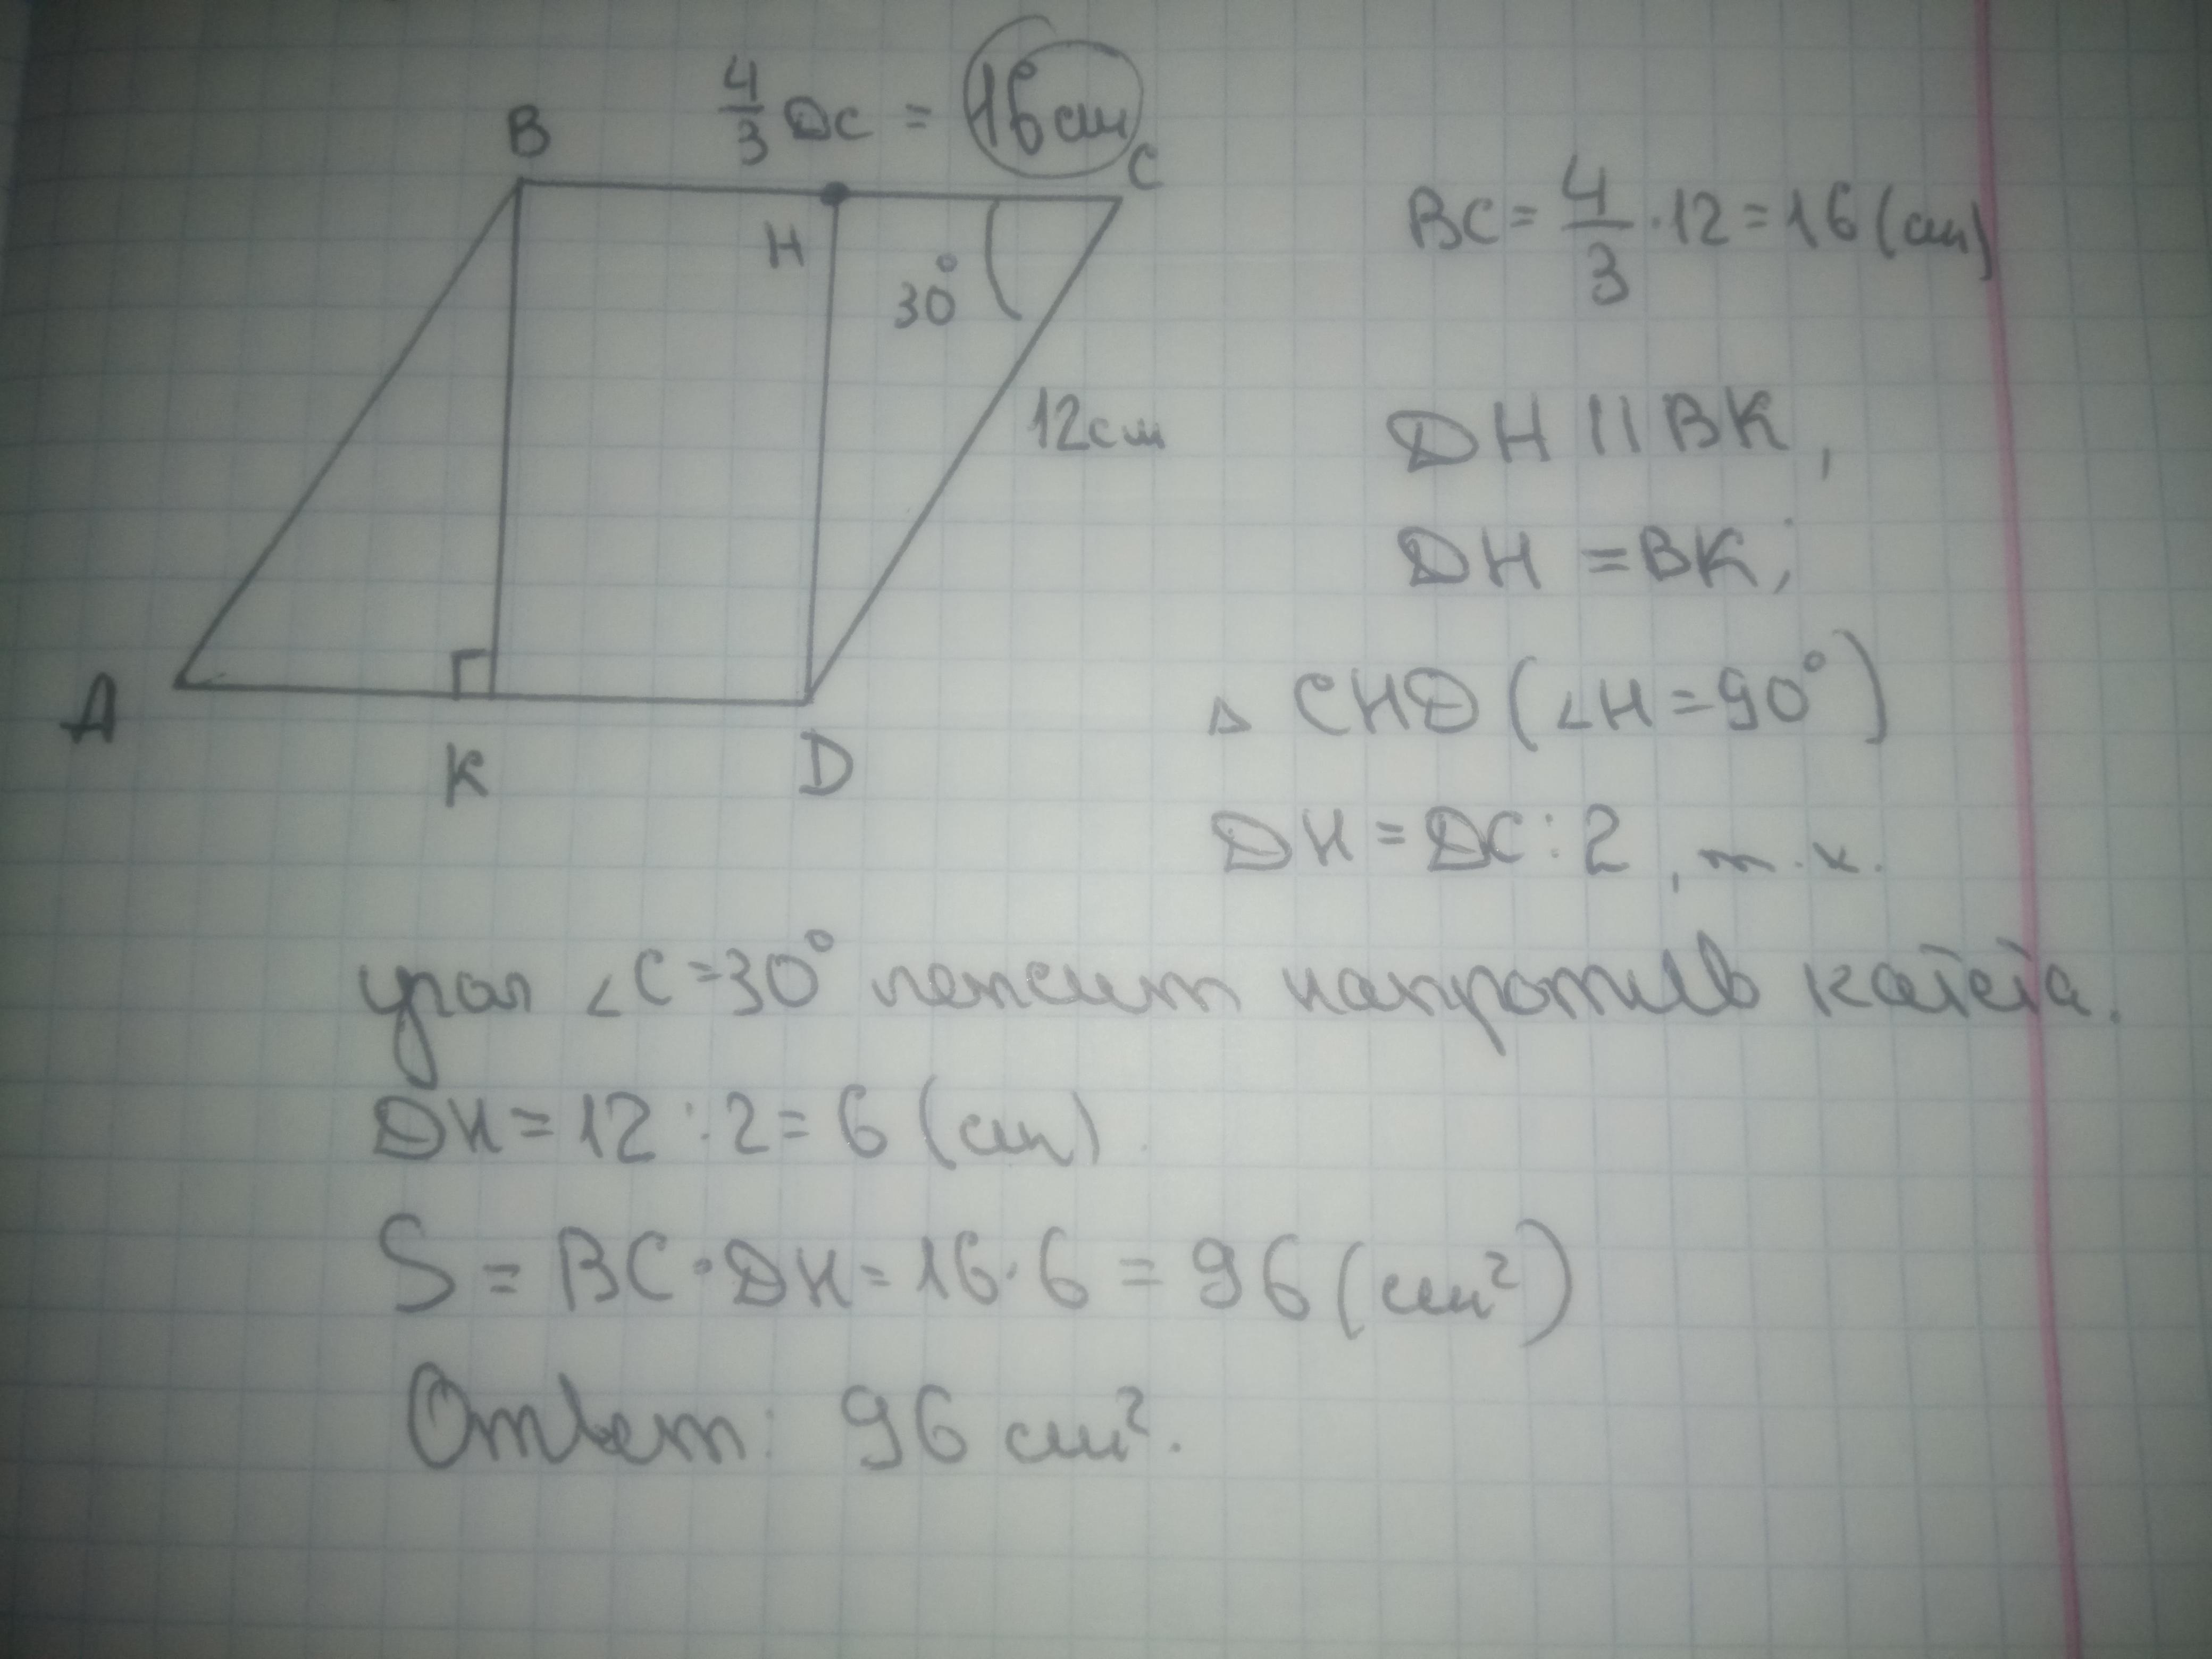 4/3 DC = 16 см
B
C
H
30°
12 см
A
K
D
BC = 4/3 · 12 = 16 (см)
DH || BK,
DH = BK;
△ CHD (∠H = 90°)
DH = DC : 2, т.к.
угол ∠C = 30° лежит напротив катета.
DH = 12 : 2 = 6 (см).
S = BC · DH = 16 · 6 = 96 (см²)
Ответ: 96 см².